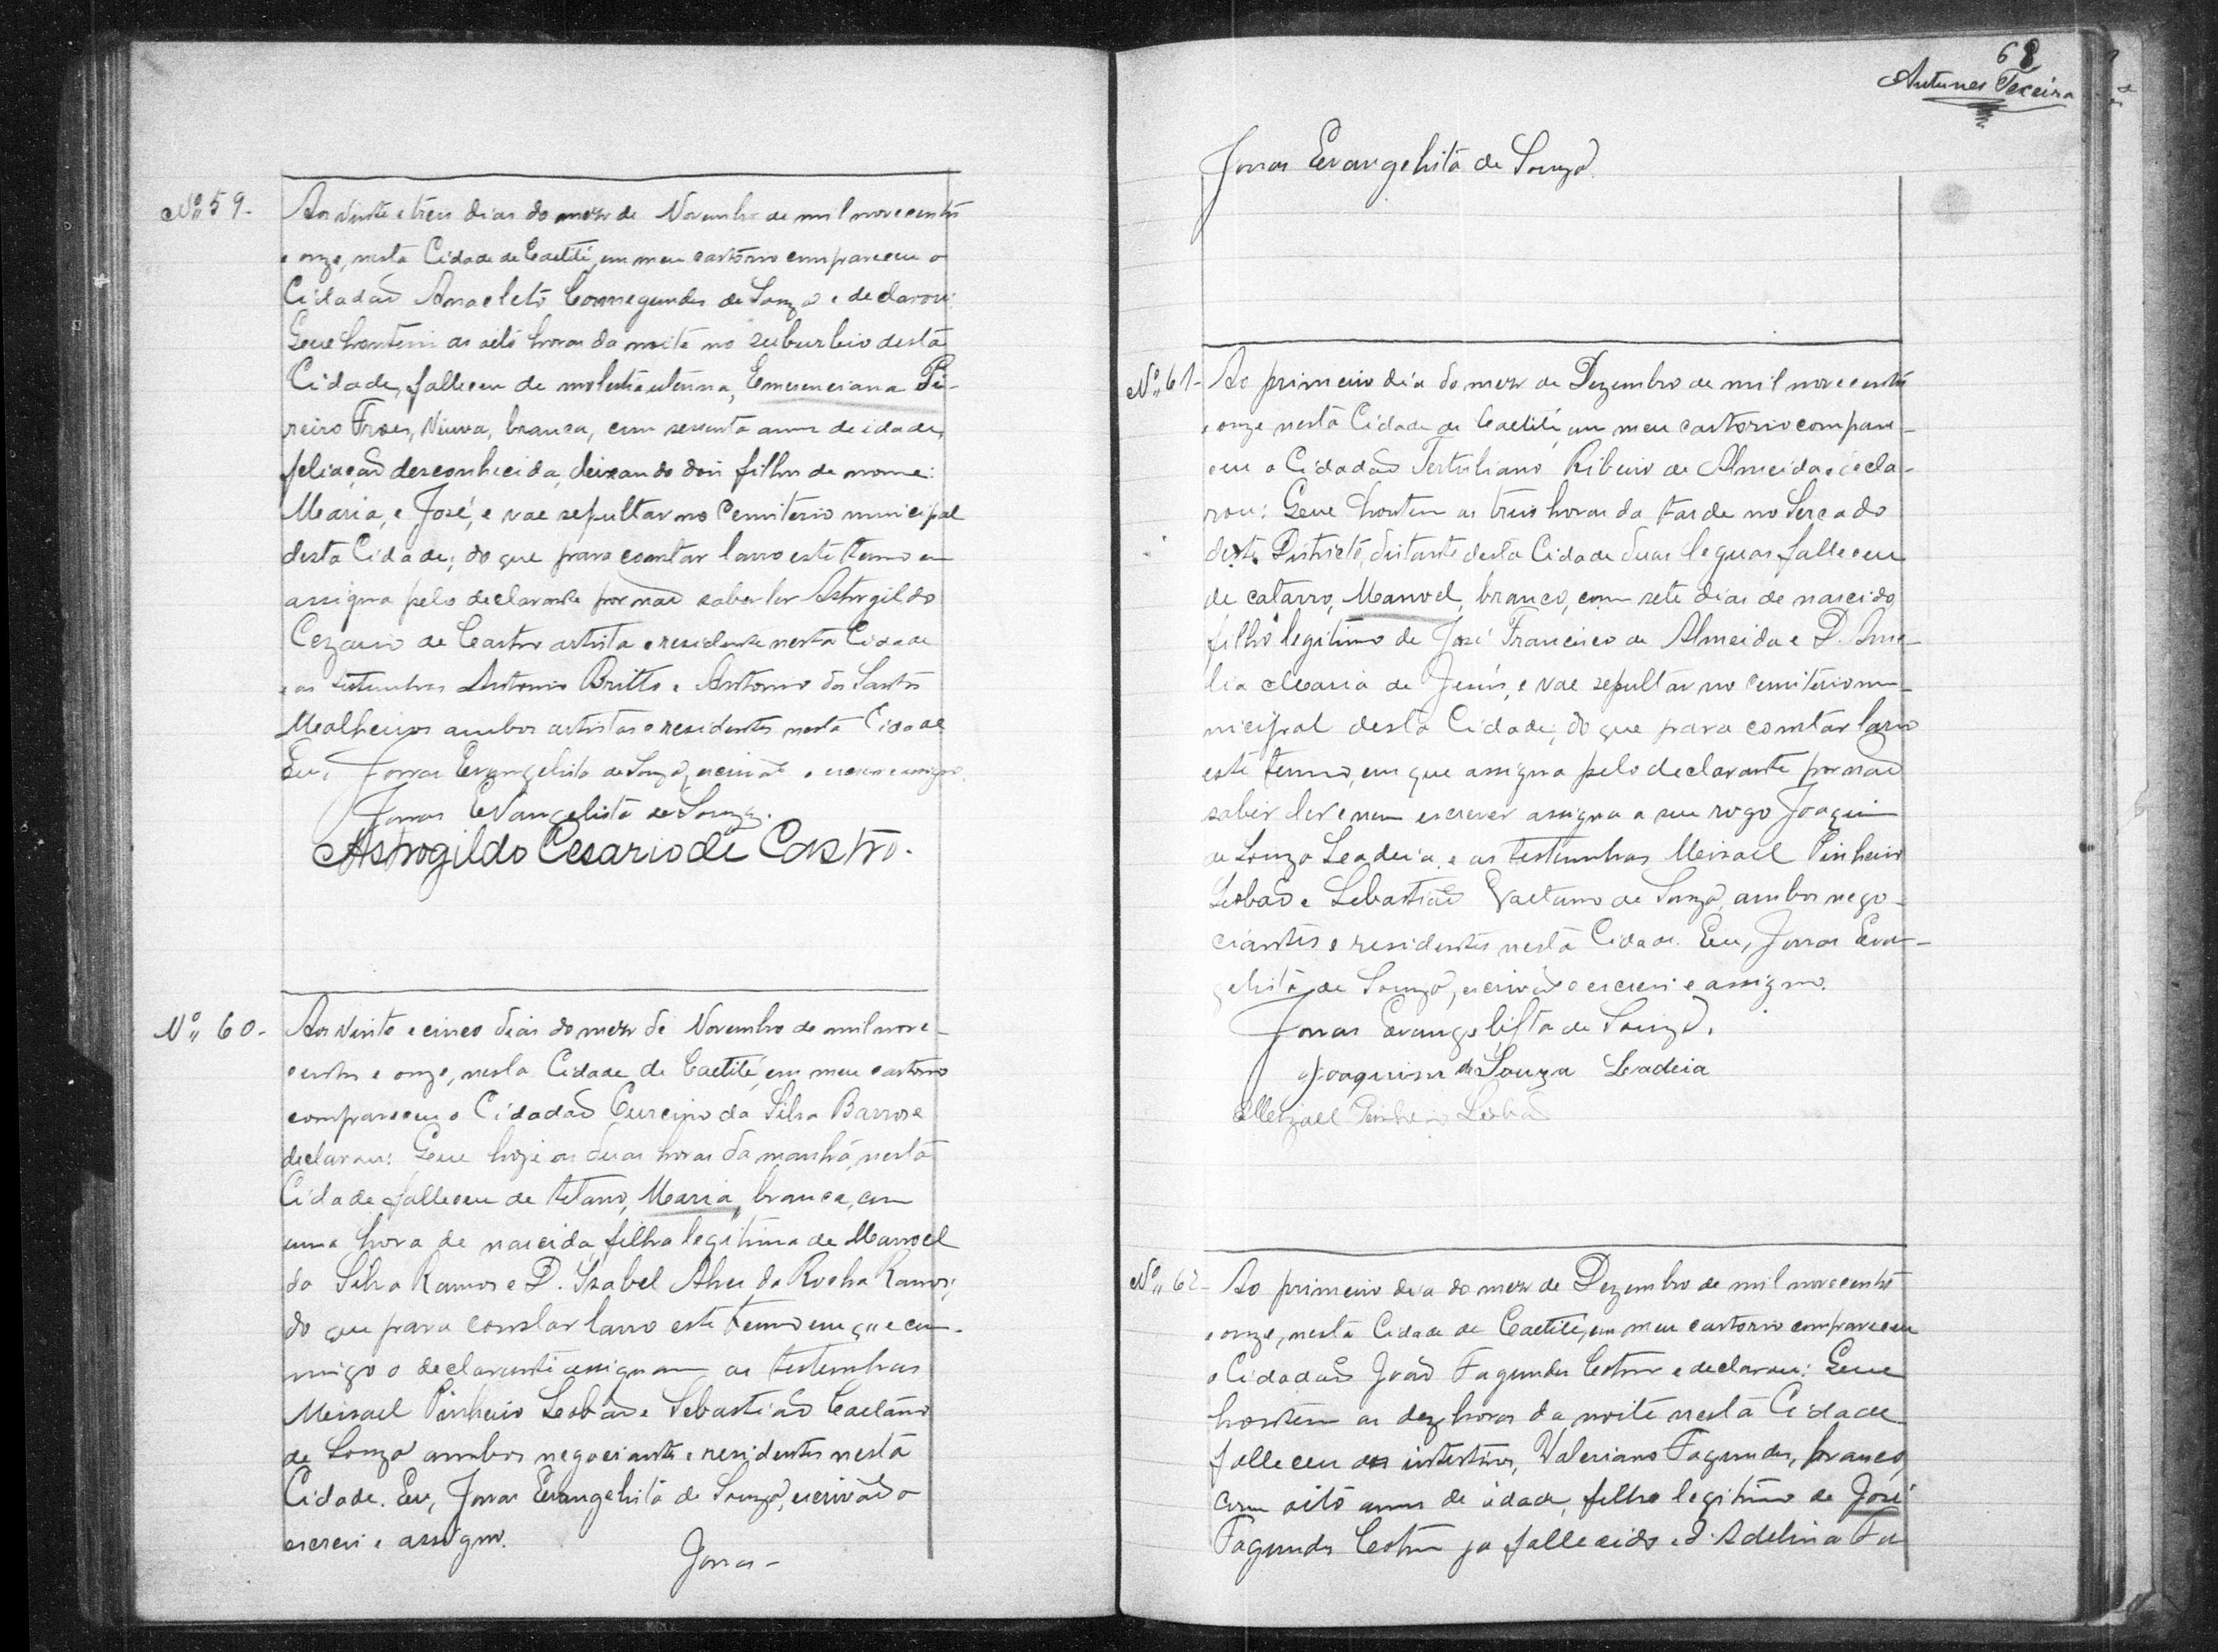 Nº 59.
Aos vinte e tres dias do mez de Novembro de mil novecentos
e onze, nesta Cidade de Caetité, em meu cartorio compareceu o
Cidadaõ Anacleto de Souza e declarou:
Que hontem as oito horas da noite no suburbio desta
Cidade, falleceu de molestia uterina, Emerenciana Pi-
reiro Froes, Viuva, branca, com sessenta annos de idade,
feliação desconhecida, deixando dois filhos de nome:
Maria, e José, e vae sepultar no Cemiterio municipal
desta Cidade; do que para constar lavro este termo em
assigna pelo declarante por naõ saber ler Astrogildo
Cezario de Castro artista e residente nesta Cidade
e as testemunhas Antonio Britto e Antonio dos Santos
Malheiros ambos artistas e residentes nesta Cidade
Eu, Jonas Evangelista de Souza, escrivaõ o escrevi e assigno.
Jonas Evangelista de Souza.
Astrogildo Cesario de Castro.
Nº 60.
Aos vinte e cinco dias do mez de Novembro de mil nove-
centos e onze, nesta Cidade de Caetité, em meu cartorio
compareceu o Cidadaõ Curcino da Silva Barros e
declarou: Que hoje as duas horas da manhã, nesta
Cidade falleceu de tetano, Maria, branca, com
uma hora de nascida, filha legitima de Manoel
da Silva Ramos e D. Izabel Alves da Rocha Ramos;
do que para constar lavro este termo em que com-
migo o declarante assignam as testemunhas
Meisael Pinheiro Lobaõ e Sebastiaõ Caetano
de Souza ambos negociantes e residentes nesta
Cidade. Eu, Jonas Evangelista de Souza, escrivaõ o
escrevi e assigno.
Jonas -
68
Antunes Teceira
Jonas Evangelista de Souza.
Nº 61-
Ao primeiro dia do mez de Dezembro de mil novecentos
e onze nesta Cidade de Caetité, em meu cartorio compare-
ceu o Cidadaõ Tertuliano Ribeiro de Almeida e decla-
rou: Que hontem as tres horas da tarde no Sercado
deste Districto, distante desta Cidade duas leguas falleceu
de catarro, Manoel, branco, com sete dias de nascido,
filho legitimo de José Francisco de Almeida e D. Ame-
lia Maria de Jesus, e vae sepultar no cemiterio mu-
nicipal desta Cidade; do que para constar lavro
este termo, em que assigna pelo declarante por naõ
saber ler e nem escrever assigna a seu rogo Joaquim
de Souza Ladeia, e as testemunhas Meisael Pinheiro
Lobaõ e Sebastiaõ Caetano de Souza, ambos nego-
ciantes e residentes nesta Cidade. Eu, Jonas Evan-
gelista de Souza, escrivaõ o escrevi e assigno.
Jonas Evangelista de Souza.
Joaquim de Souza Ladeia
Meizael Pinheiro Lobaõ
Nº 62-
Ao primeiro dia do mez de Dezembro de mil novecentos
e onze, nesta Cidade de Caetité, em meu cartorio compareceu
o Cidadaõ Joaõ Fagundes Cotrim e declarou: Que
hontem as dez horas da noite nesta Cidade
falleceu de intestinos, Valeriano Fagundes, branco,
com oito annos de idade, filho legitimo de José
Fagundes Cotrim ja fallecido e D. Adelina Fa